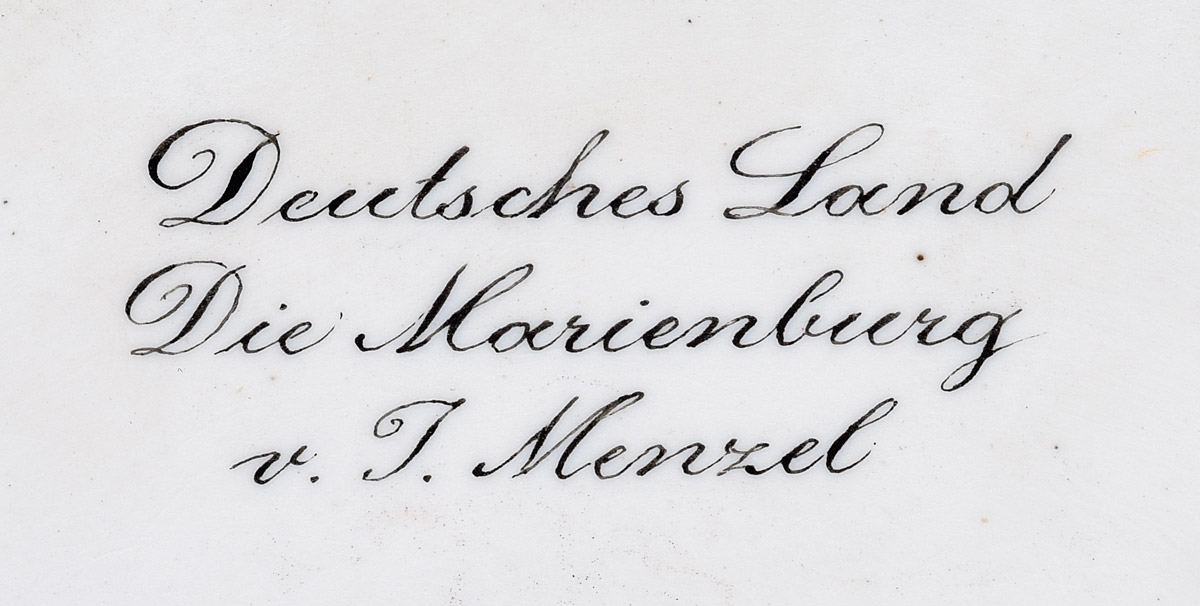 Deutsches Land
Die Marienburg
v. J. Menzel